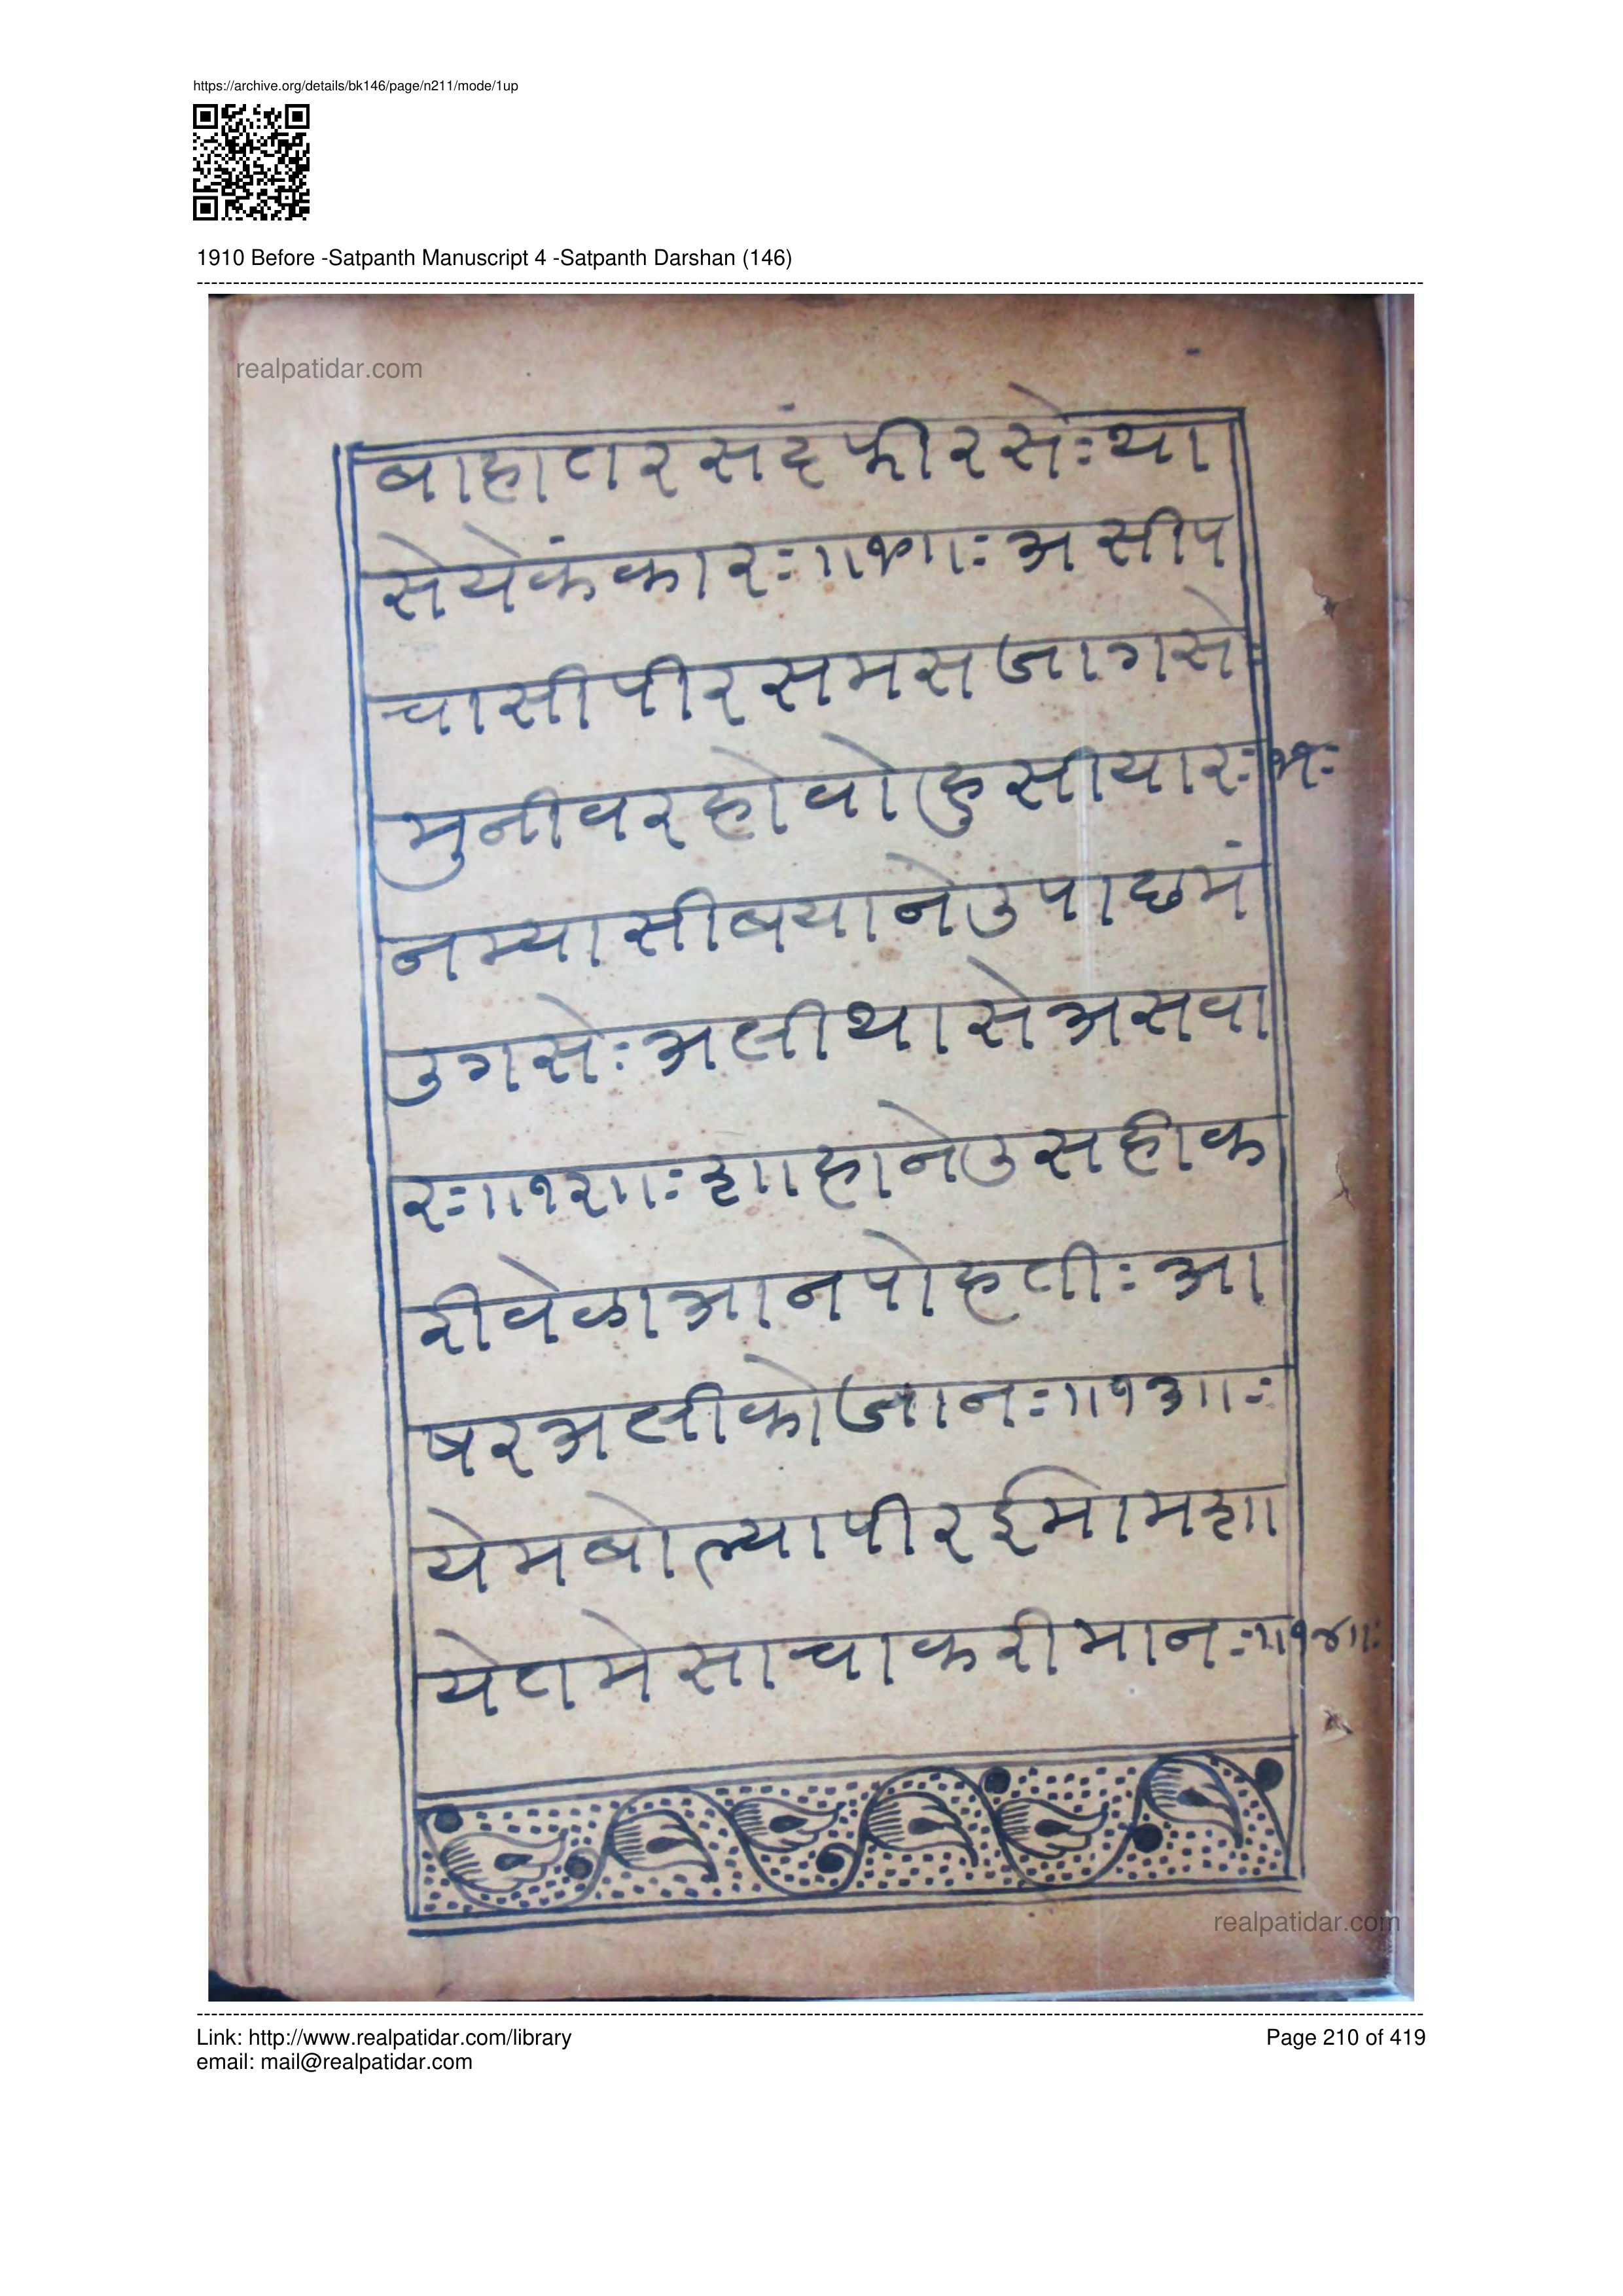 https://archive.org/details/bk146/page/n211/mode/1up
1910 Before -Satpanth Manuscript 4 -Satpanth Darshan (146)
realpatidar.com
बाहातरसंदफीरसेःथा
सेयेकंकारः॥१०॥ःअसीप
चासीपीरसमसजागसेः
मुनीवरहोवोहुसीयारः११ः
नम्यासीबयानेउपाछमं
उगसेःअलीथासेअसवा
रः॥१२॥ःशाहानेउसहीक
रीवेळाआनपोहतीःआ
षरअलीकोजानः॥१३॥ः
येमबोल्यापीरईमामशा
येतमेसाचाकरीमानः॥१४॥ः
realpatidar.com
Link: http://www.realpatidar.com/library
Page 210 of 419
email: mail@realpatidar.com